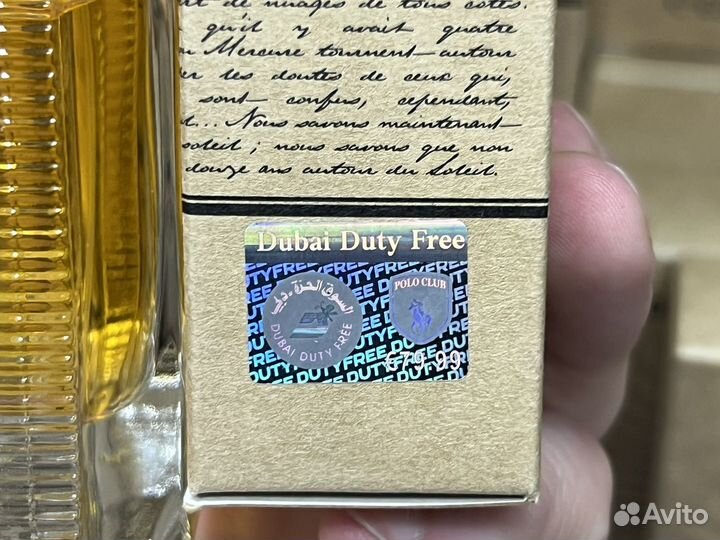 rt de nuages de tous cotés.
qu'il y avait quatre
Mercure tournent autour
er les doutes de ceux qui,
sont confus, cependant,
... Nous savons maintenant
soleil ; nous savons que non
douze ans autour du Soleil.
Dubai Duty Free
السوق الحرة دبي
DUBAI DUTY FREE
POLO CLUB
€79.99
DUTYFREE DUTYFREE DUTYFREE
Avito